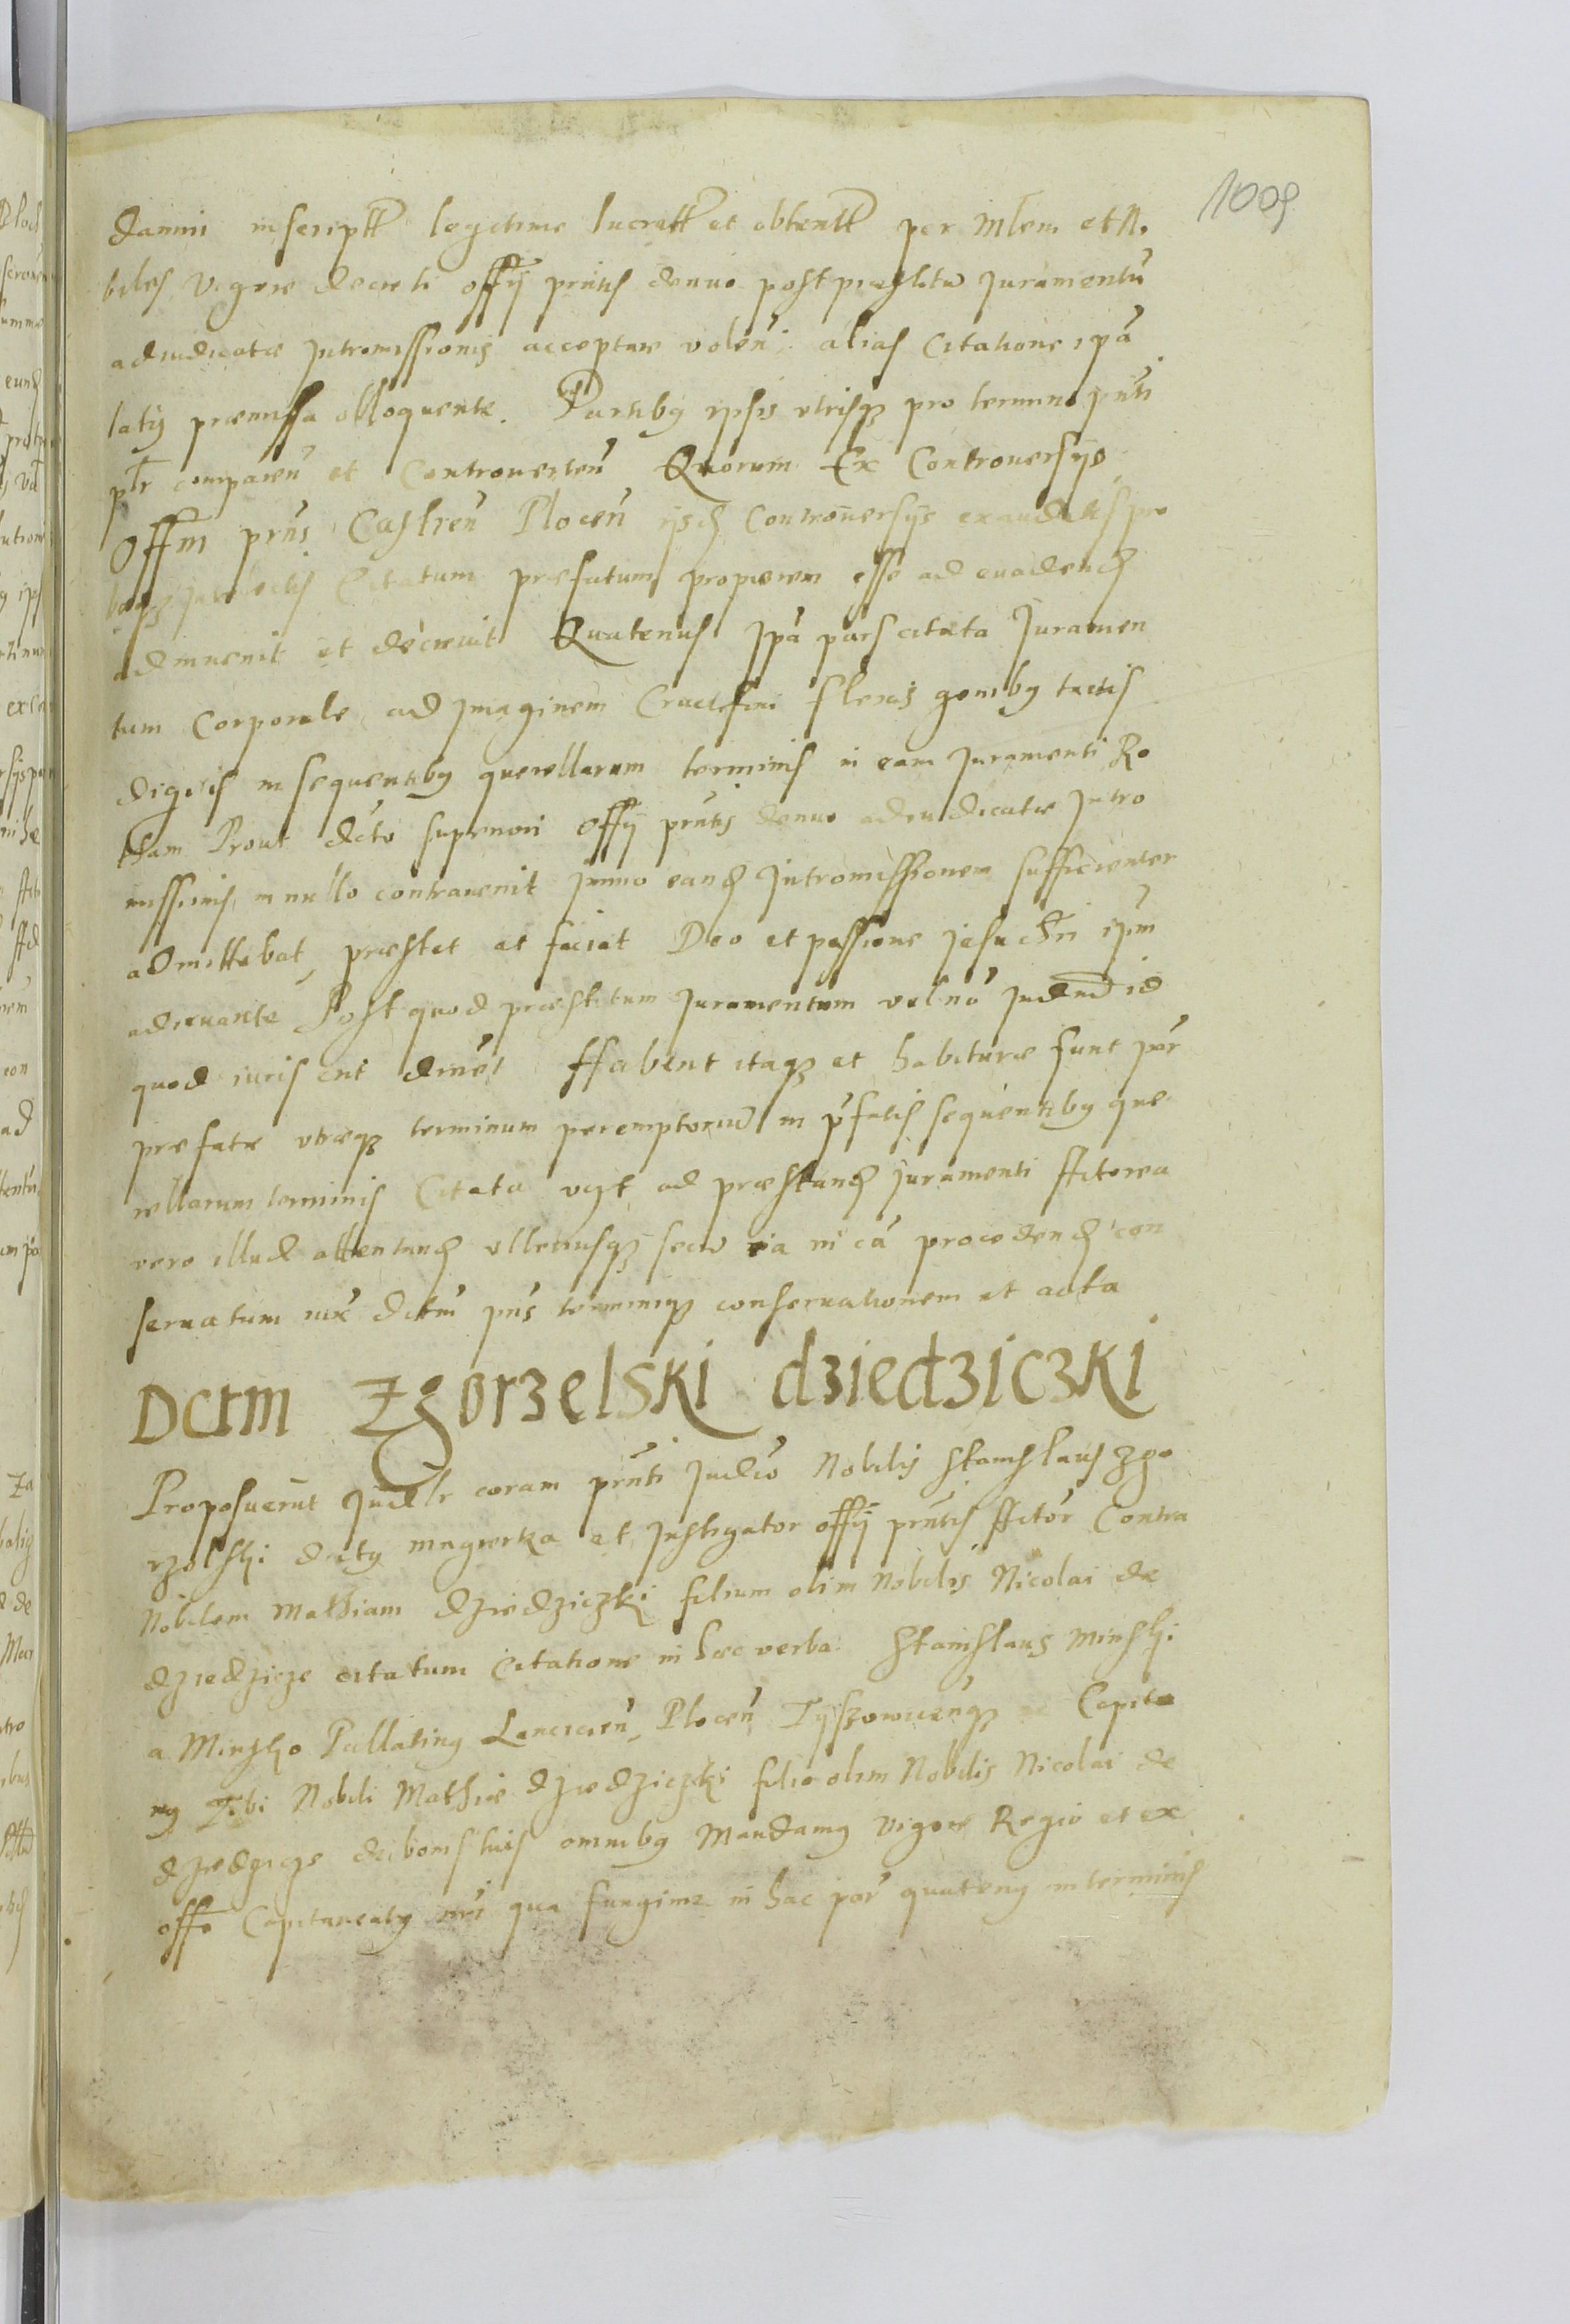 1009
damni inscriptt legitime lucratt et obtentt per Mlem et No
biles vigore decreti offij pntis denuo post praestitu Juramentu
adiudicatae Intromissionis acceptare volen alias Citatione ipa
latius praemissa obloquente. Partibus ipsis utrisq pro termino pnti
ptr comparen et Controverten Quorum Ex Controversijs
Offm pns Castren Plocen ijsd Controversijs exauditis pro
Citatum praefatum propiorem esse ad evadend
adinvenit et decrevit Quatenus Ipa pars citata Juramen
tum Corporale ad Imaginem Crucifixi flexis genibus tactis
digitis in sequentibus querellarum terminis in eam Juramenti Ro
tham Prout dcto superiori offij pntis denuo adiudicatae Intro
missionis in nullo contravenit Immo eand Intromissionem sufficienter
admittebat, praestet et faciat Deo et passione Jesu Chri ipm
adiuvante Post quod praestitum Juramentum vel no Judm id
quod iuris erit divet Habent itaq et habiturae sunt par
praefatae utraeq terminum peremptoriu in pfatis sequentibus que
rellarum terminis Citata vizt ad praestand Juramenti Actorea
vero illud attentand ulteriusq secu via in ca procedend con
servatum iux dctm pns terminiq conservationem et acta
Dctm Zgorzelski dziedziczki
Proposuerut Judlr coram pnti Judio Nobilis Stanislaus Zgo
rzelski dictus magierka et Instigator offij pntis Actor Contra
Nobilem Mathiam dziedziczki filium olim Nobilis Nicolai de
dziedzicze citatum Citatione in haec verba Stanislaus Minski
a Minsko Pallatinus Lancicien, Plocen Tyszowicenq Capita
nus Tibi Nobili Mathiae dziedziczki filio olim Nobilis Nicolai de
dziedzicze de bonis tuis omnibus Mandamus Vigore Regio et ex
offo Capitaneatus nri qua fungimr in hac par quatenus in terminis